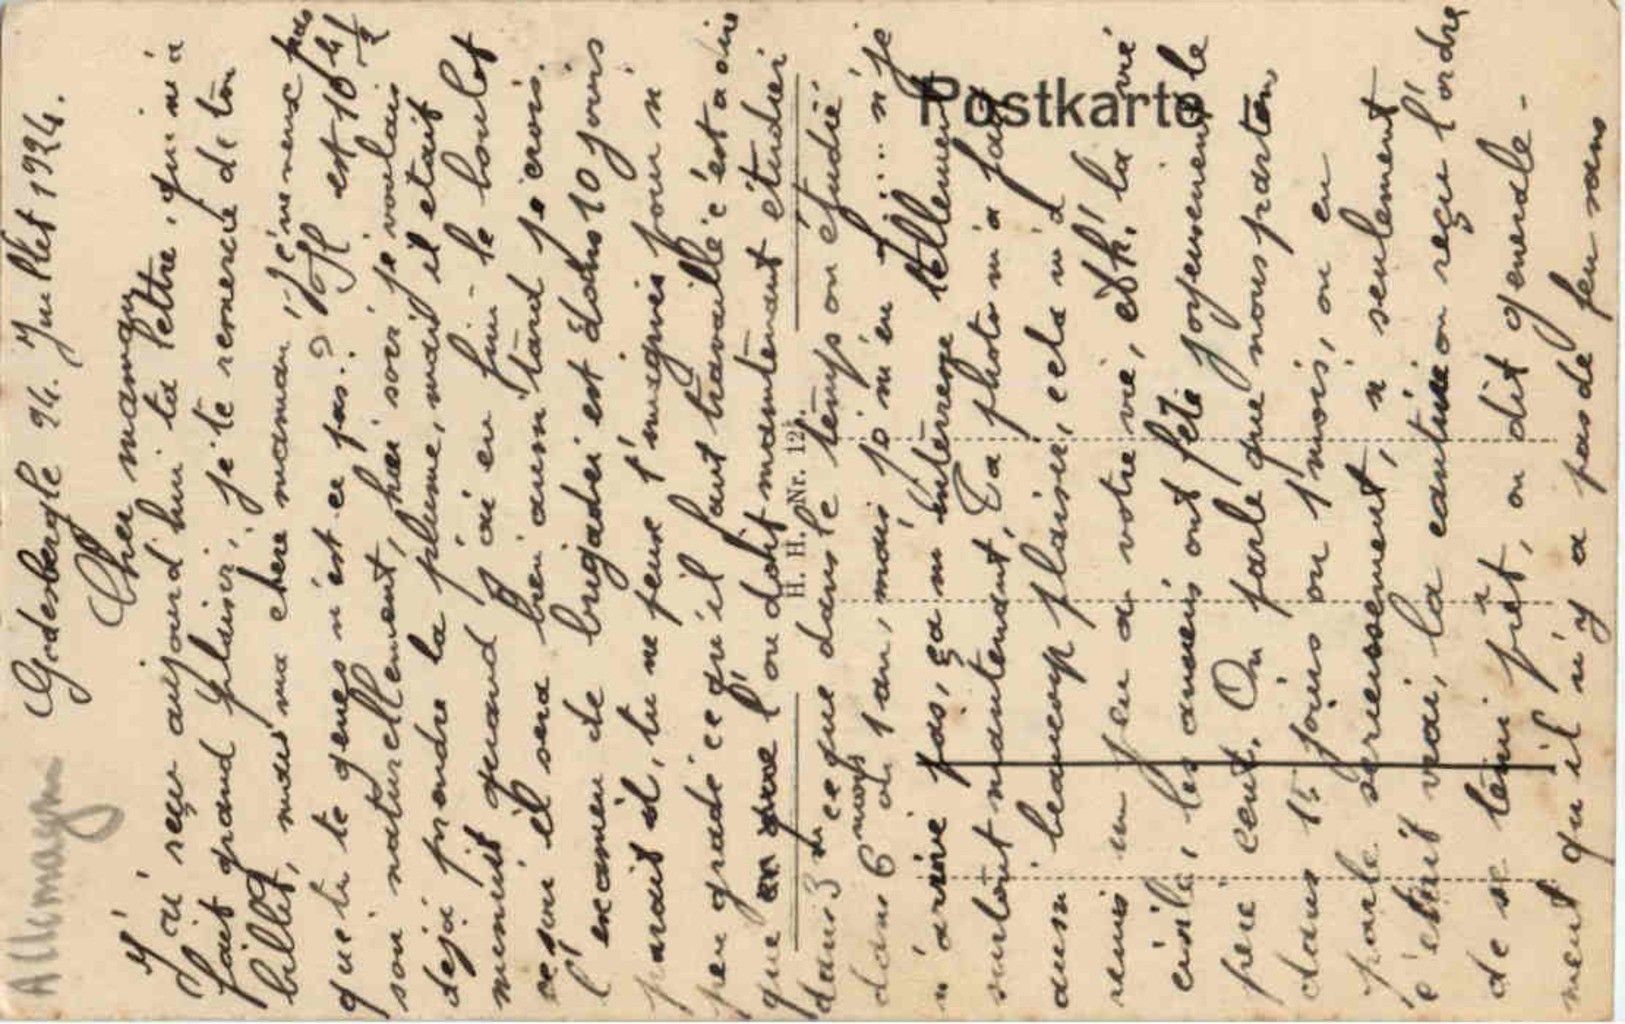 Allemagne
Godesberg le 24. Juillet 1924.
Chère maman
J'ai reçu aujourd'hui ta lettre, qui m'a
fait grand plaisir, je te remercie de ton
billet, mais ma chère maman, je ne veux pas
que tu te gènes n'est ce pas? Il est 10h 1/2
soir naturellement, hier soir je voulais
dejà prendre la plume, mais il était
minuit quand j'ai eu fini le boulot
ce soir il sera bien aussi tard je crois.
l'examen de brigadier est dans 10 jours
parait il, tu ne peux t'imaginer pour n
peu gradé ce qu'il faut travaillé c'est a dire
que l'on doit maintenant étudier
dans 3 ce que dans le temps on étudié
dans 6 mois ou 1 an, mais je m'en f..... n' je
n'arrive pas, ça m'intéresse tellement
surtout maintenant. Ta photo m'a fait
aussi beaucoup plaisir, cela m'a
remis un peu a votre vie, eh! la vie
civile, les anciens ont fêté joyeusement le
père cent. On parle que nous partons
dans 15 jours ou 1 mois, on en
parle serieusement, si seulement
c'etait vrai, la cantine on reçu l'ordre
de se tenir prêt, on dit generale-
ment qu'il n'y a pas de feu sans
Postkarte
H. H. Nr. 12